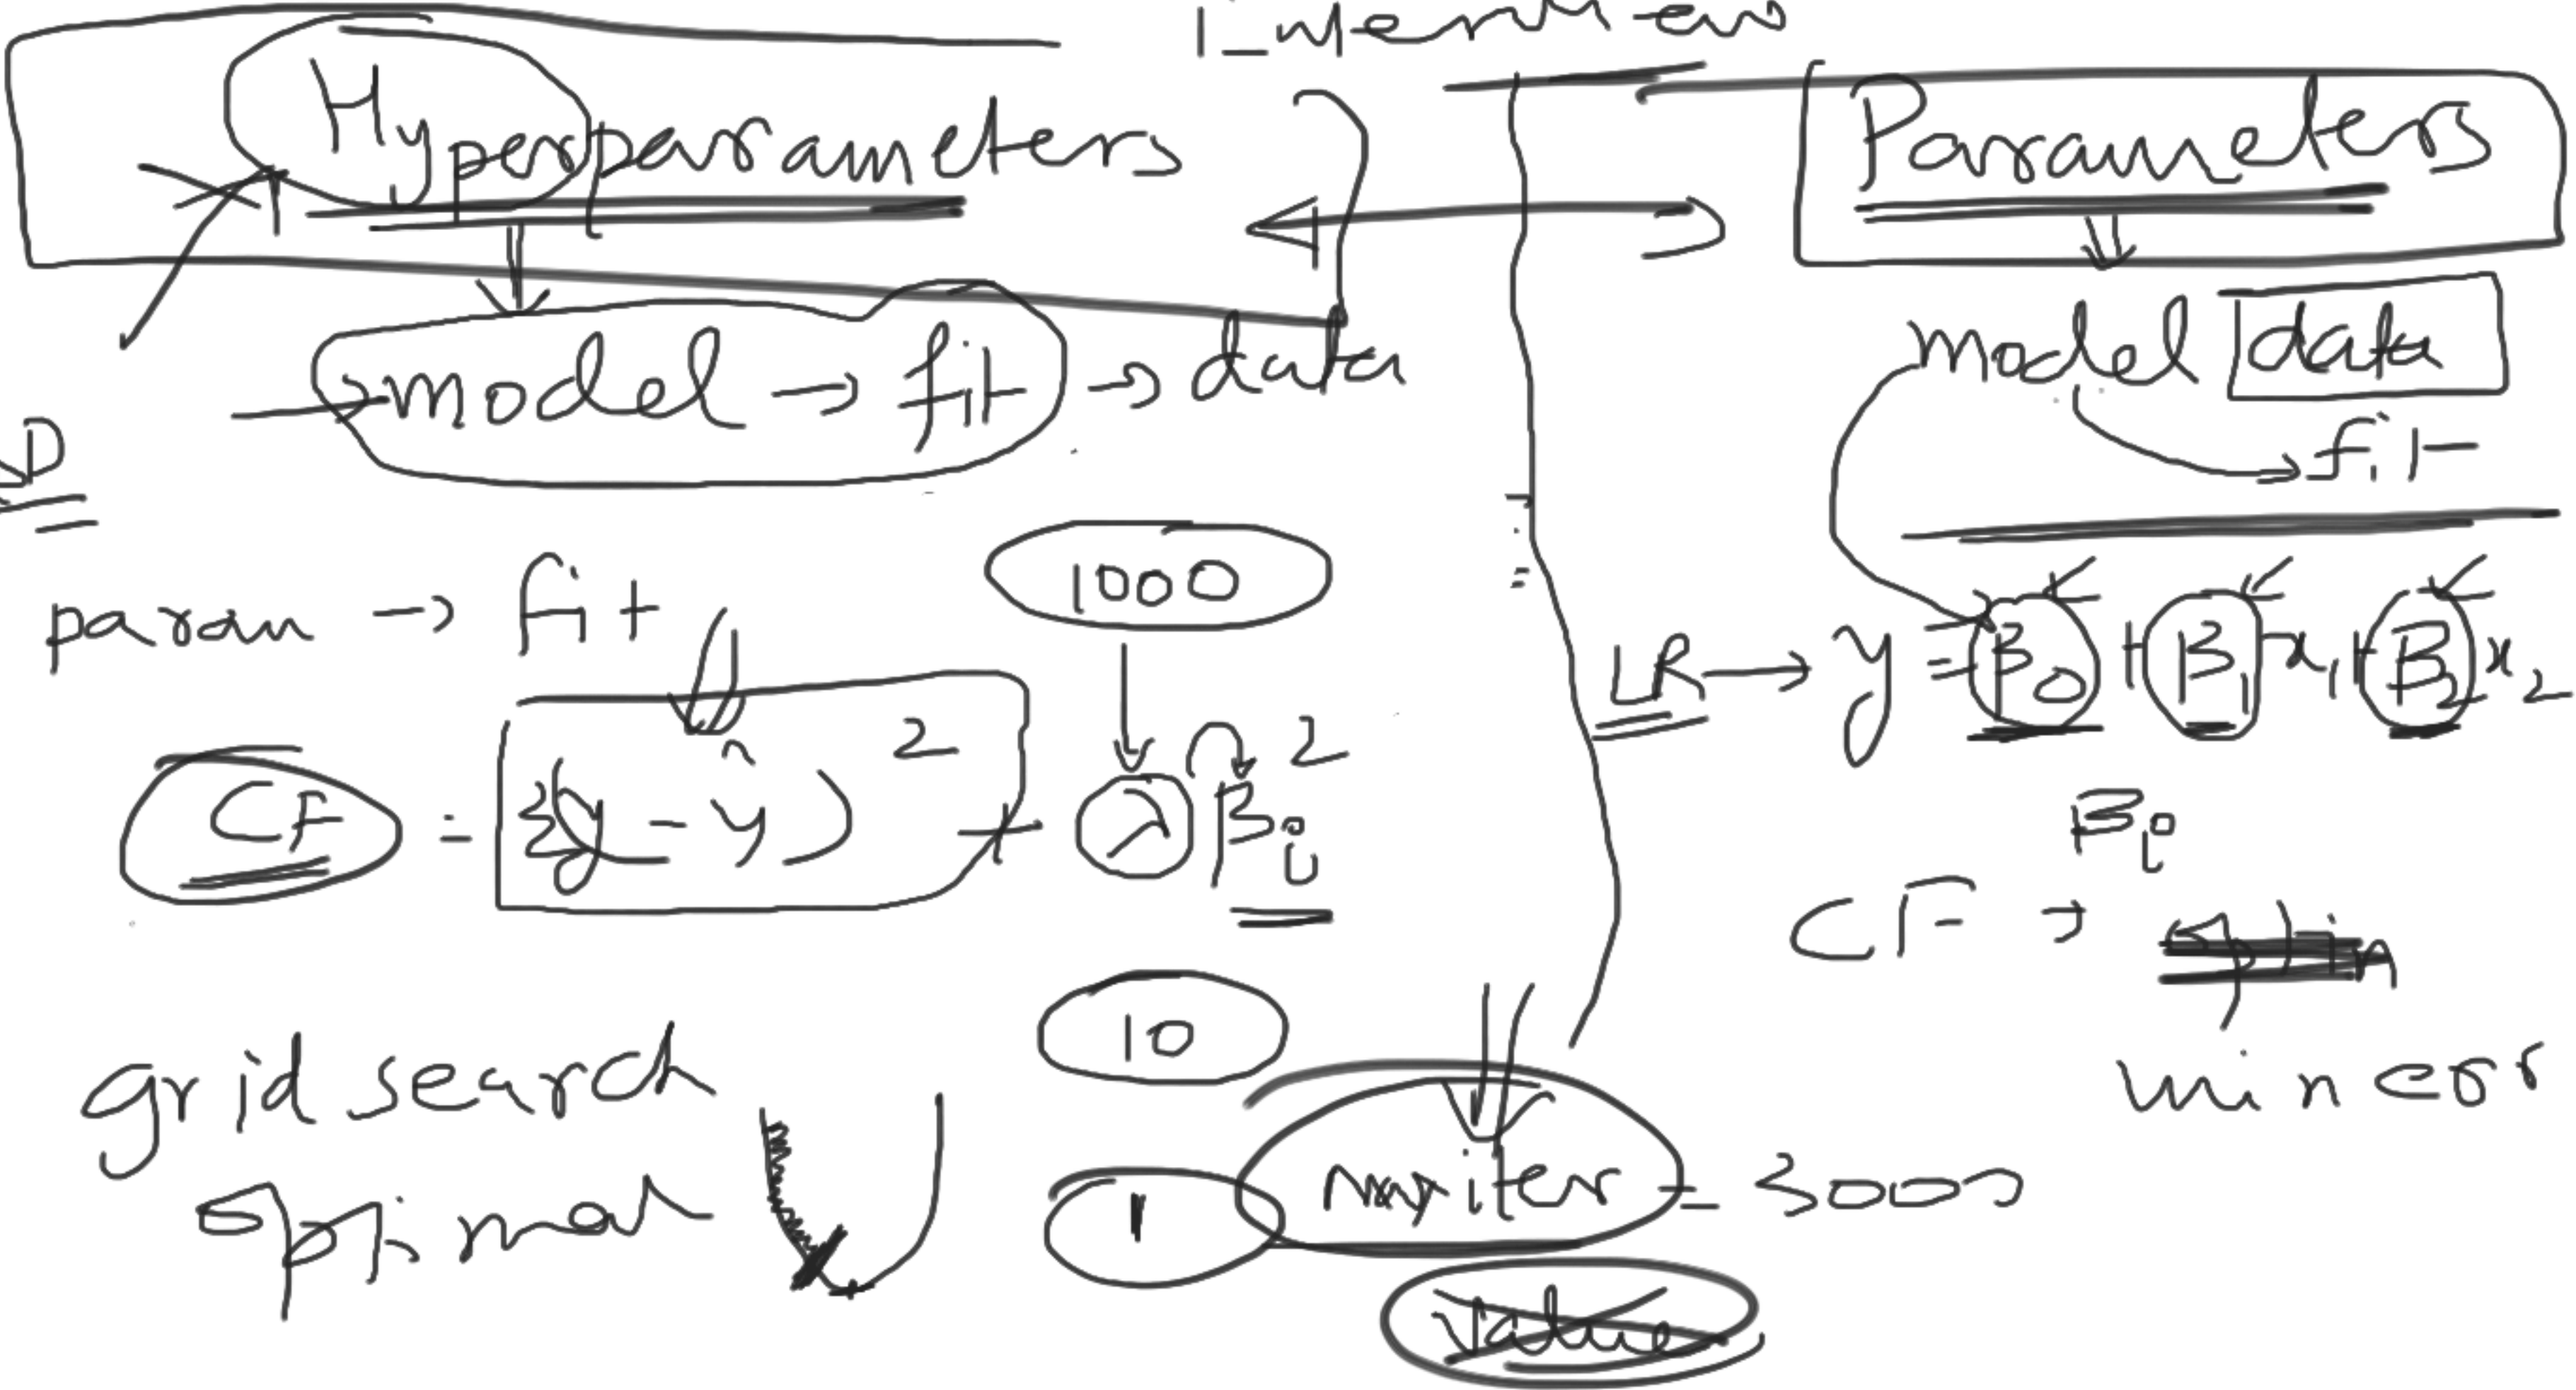 Hyperparameters
model → fit → data
D
param → fit
1000
CF = Σ(y - ŷ)² + λ βi²
grid search
optimal
10
1
max iter = 3000
value
Parameters
model data
fit
LR → y = β0 + β1 x1 + β2 x2
βi
CF →
min error